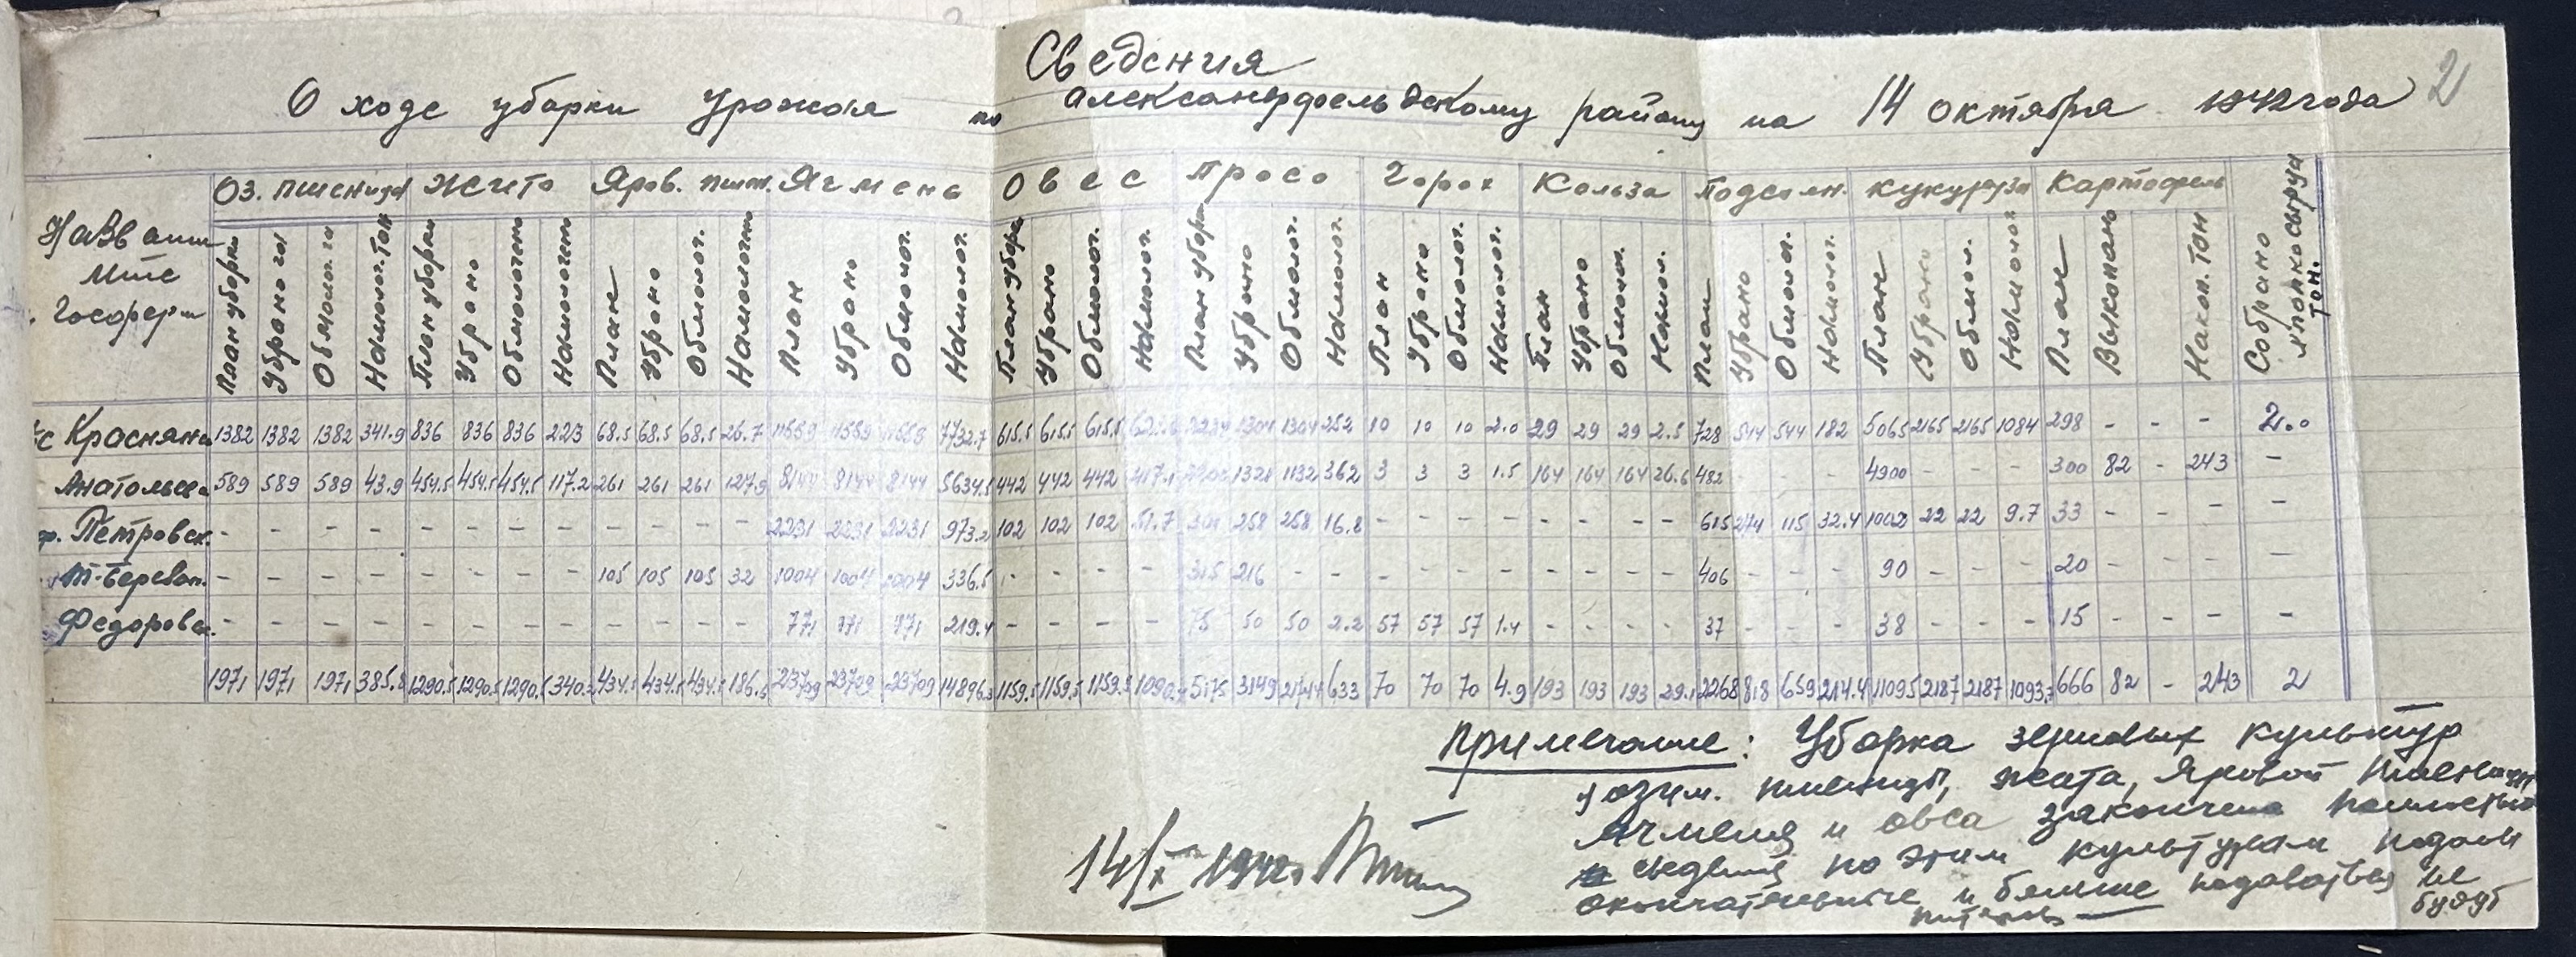 2
Сведения
О ходе уборки урожая по александрфельдскому району на 14 октября 1942 года
Оз. пшеница Жито Яров. пшен. Ячмень Овес Просо Горох Кольза Подсолн. Кукуруза Картофель
План уборки Убрано га Обмолот. га Намолот. тон План уборки Убрано Обмолочено Намолочено План Убрано Обмолот. Намолочено План Убрано Обмолот. Намолот. План уборки Убрано Обмолот. Намолот. План уборки Убрано Обмолот. Намолот. План Убрано Обмолот. Намолот. План Убрано Обмолот. Намол. План Убрано Обмолот. Намолот. План Убрано Обмол. Намолот План Выкопано Накоп. тон Собрано хлопка сырца тон.
1382 1382 1382 341.9 836 836 836 223 68.5 68.5 68.5 26.7 11559 11559 11559 7732.7 615.5 615.5 615.5 1304 1304 252 10 10 10 2.0 29 29 29 2.5 728 544 544 182 5065 2165 2165 1084 298 - - - 2.0
589 589 589 43.9 454.5 454.5 454.5 117.2 261 261 261 127.9 8144 8144 8144 5634.5 442 442 442 417.1 1321 1132 362 3 3 3 1.5 164 164 164 26.6 482 - - - 4900 - - - 300 82 - 243 -
Петровск. - - - - - - - - - - - - 2231 2231 2231 973.2 102 102 102 51.7 301 258 258 16.8 - - - - - - - - 615 274 115 32.4 1002 22 22 9.7 33 - - - -
- - - - - - - - 105 105 105 32 1004 1004 1004 336.5 - - - - 315 216 - - - - - - - - - - 406 - - - 90 - - - 20 - - - -
Федоровс. - - - - - - - - - - - - 771 771 771 219.4 - - - - 75 50 50 2.2 57 57 57 1.4 - - - - 37 - - - 38 - - - 15 - - - -
1971 1971 1971 385.8 1290.5 1290.5 1290.5 340.2 434.5 434.5 434.5 186.6 23709 23709 23709 14896.3 1159.5 1159.5 1159.5 5175 3149 2744 633 70 70 70 4.9 193 193 193 29.1 2268 818 659 214.4 11095 2187 2187 1093.7 666 82 - 243 2
Примечание: Уборка зерновых культур
озим. пшеницы, жита, яровой пшеницы
ячменя и овса закончена полностью
сведения по этим культурам подали
окончательные и больше подаваться не
будут
14/X 1942г